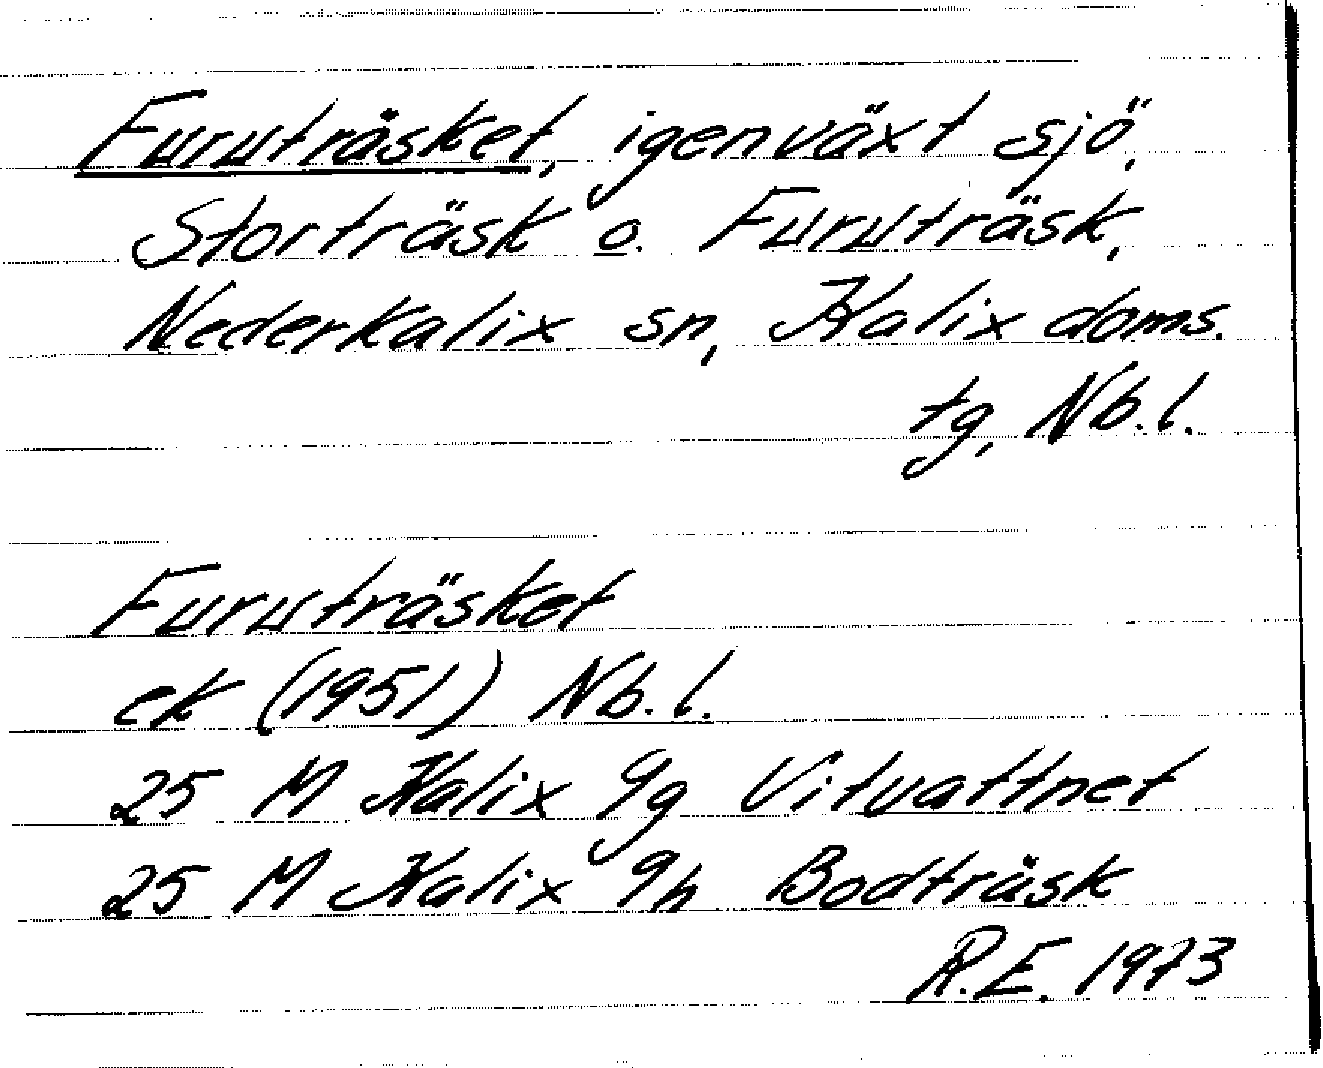 Furuträsket, igenväxt sjö,
Storträsk o. Furuträsk,
Nederkalix sn, Kalix doms.
tg, Nb.l.
Furuträsket
ek (1951) Nb.l.
25 M Kalix 9g Vitvattnet
25 M Kalix 9h Bodträsk
R.E. 1973